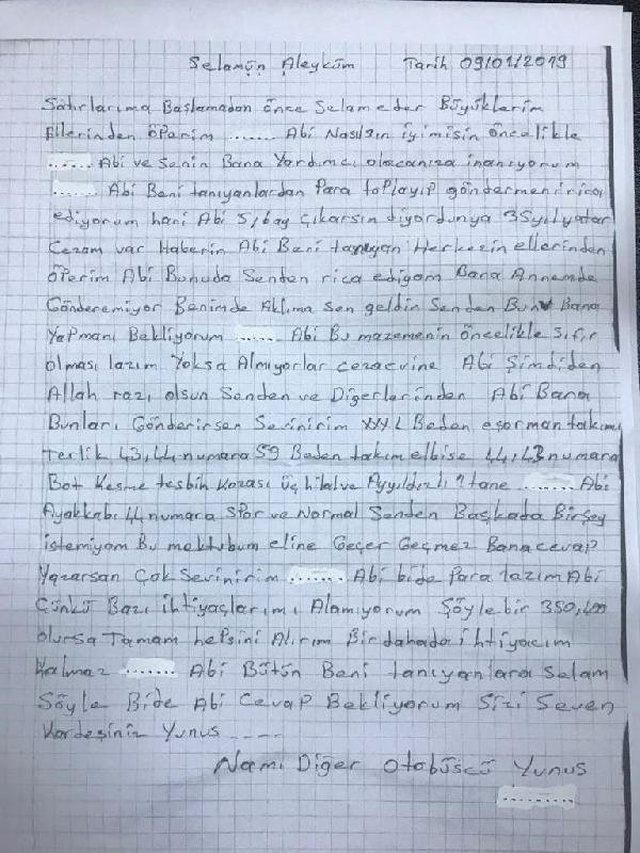 Selamün Aleyküm Tarih 09/01/2019
Satırlarıma Başlamadan önce Selam eder Büyüklerim
Ellerinden öperim ...... Abi Nasılsın iyimisin öncelikle
...... Abi ve Senin Bana Yardımcı olacanıza inanıyorum
...... Abi Beni tanıyanlardan Para toplayıp göndermeni rica
ediyorum hani Abi çıkarsın diyordunya 35 yıl yatar
Cezam var Haberin Abi Beni tanıyan Herkezin ellerinden
öperim Abi Bunuda Senden rica ediyom Bana Annemde
Gönderemiyor Benimde Aklıma Sen geldin Senden Bunu Bana
Yapmanı Bekliyorum ...... Abi Bu mazemenin öncelikle Sıfır
olması lazım Yoksa Almıyorlar cezaevine Abi Şimdiden
Allah razı olsun Senden ve Diğerlerinden Abi Bana
Bunları Gönderirsen Sevinirim XXXL Beden eşorman takımı
Terlik 43,44 numara 59 Beden takım elbise 44,43 numara
Bot Kesme tesbih Üç hilal ve Ayyıldızlı 1 tane ...... Abi
Ayakkabı 44 numara Spor ve Normal Senden Başkada Birşey
istemiyom Bu mektubum eline Geçer Geçmez Bana cevap
Yazarsan Çok Sevinirim ...... Abi bide Para lazım Abi
Çünkü Bazı ihtiyaçlarımı Alamıyorum Şöyle bir 350,400
olursa Tamam hepsini Alırım Bir dahada ihtiyacım
Kalmaz ...... Abi Bütün Beni tanıyanlara Selam
Söyle Bide Abi Cevap Bekliyorum Sizi Seven
Kardeşiniz Yunus ....
Namı Diğer Otobüscü Yunus
..........